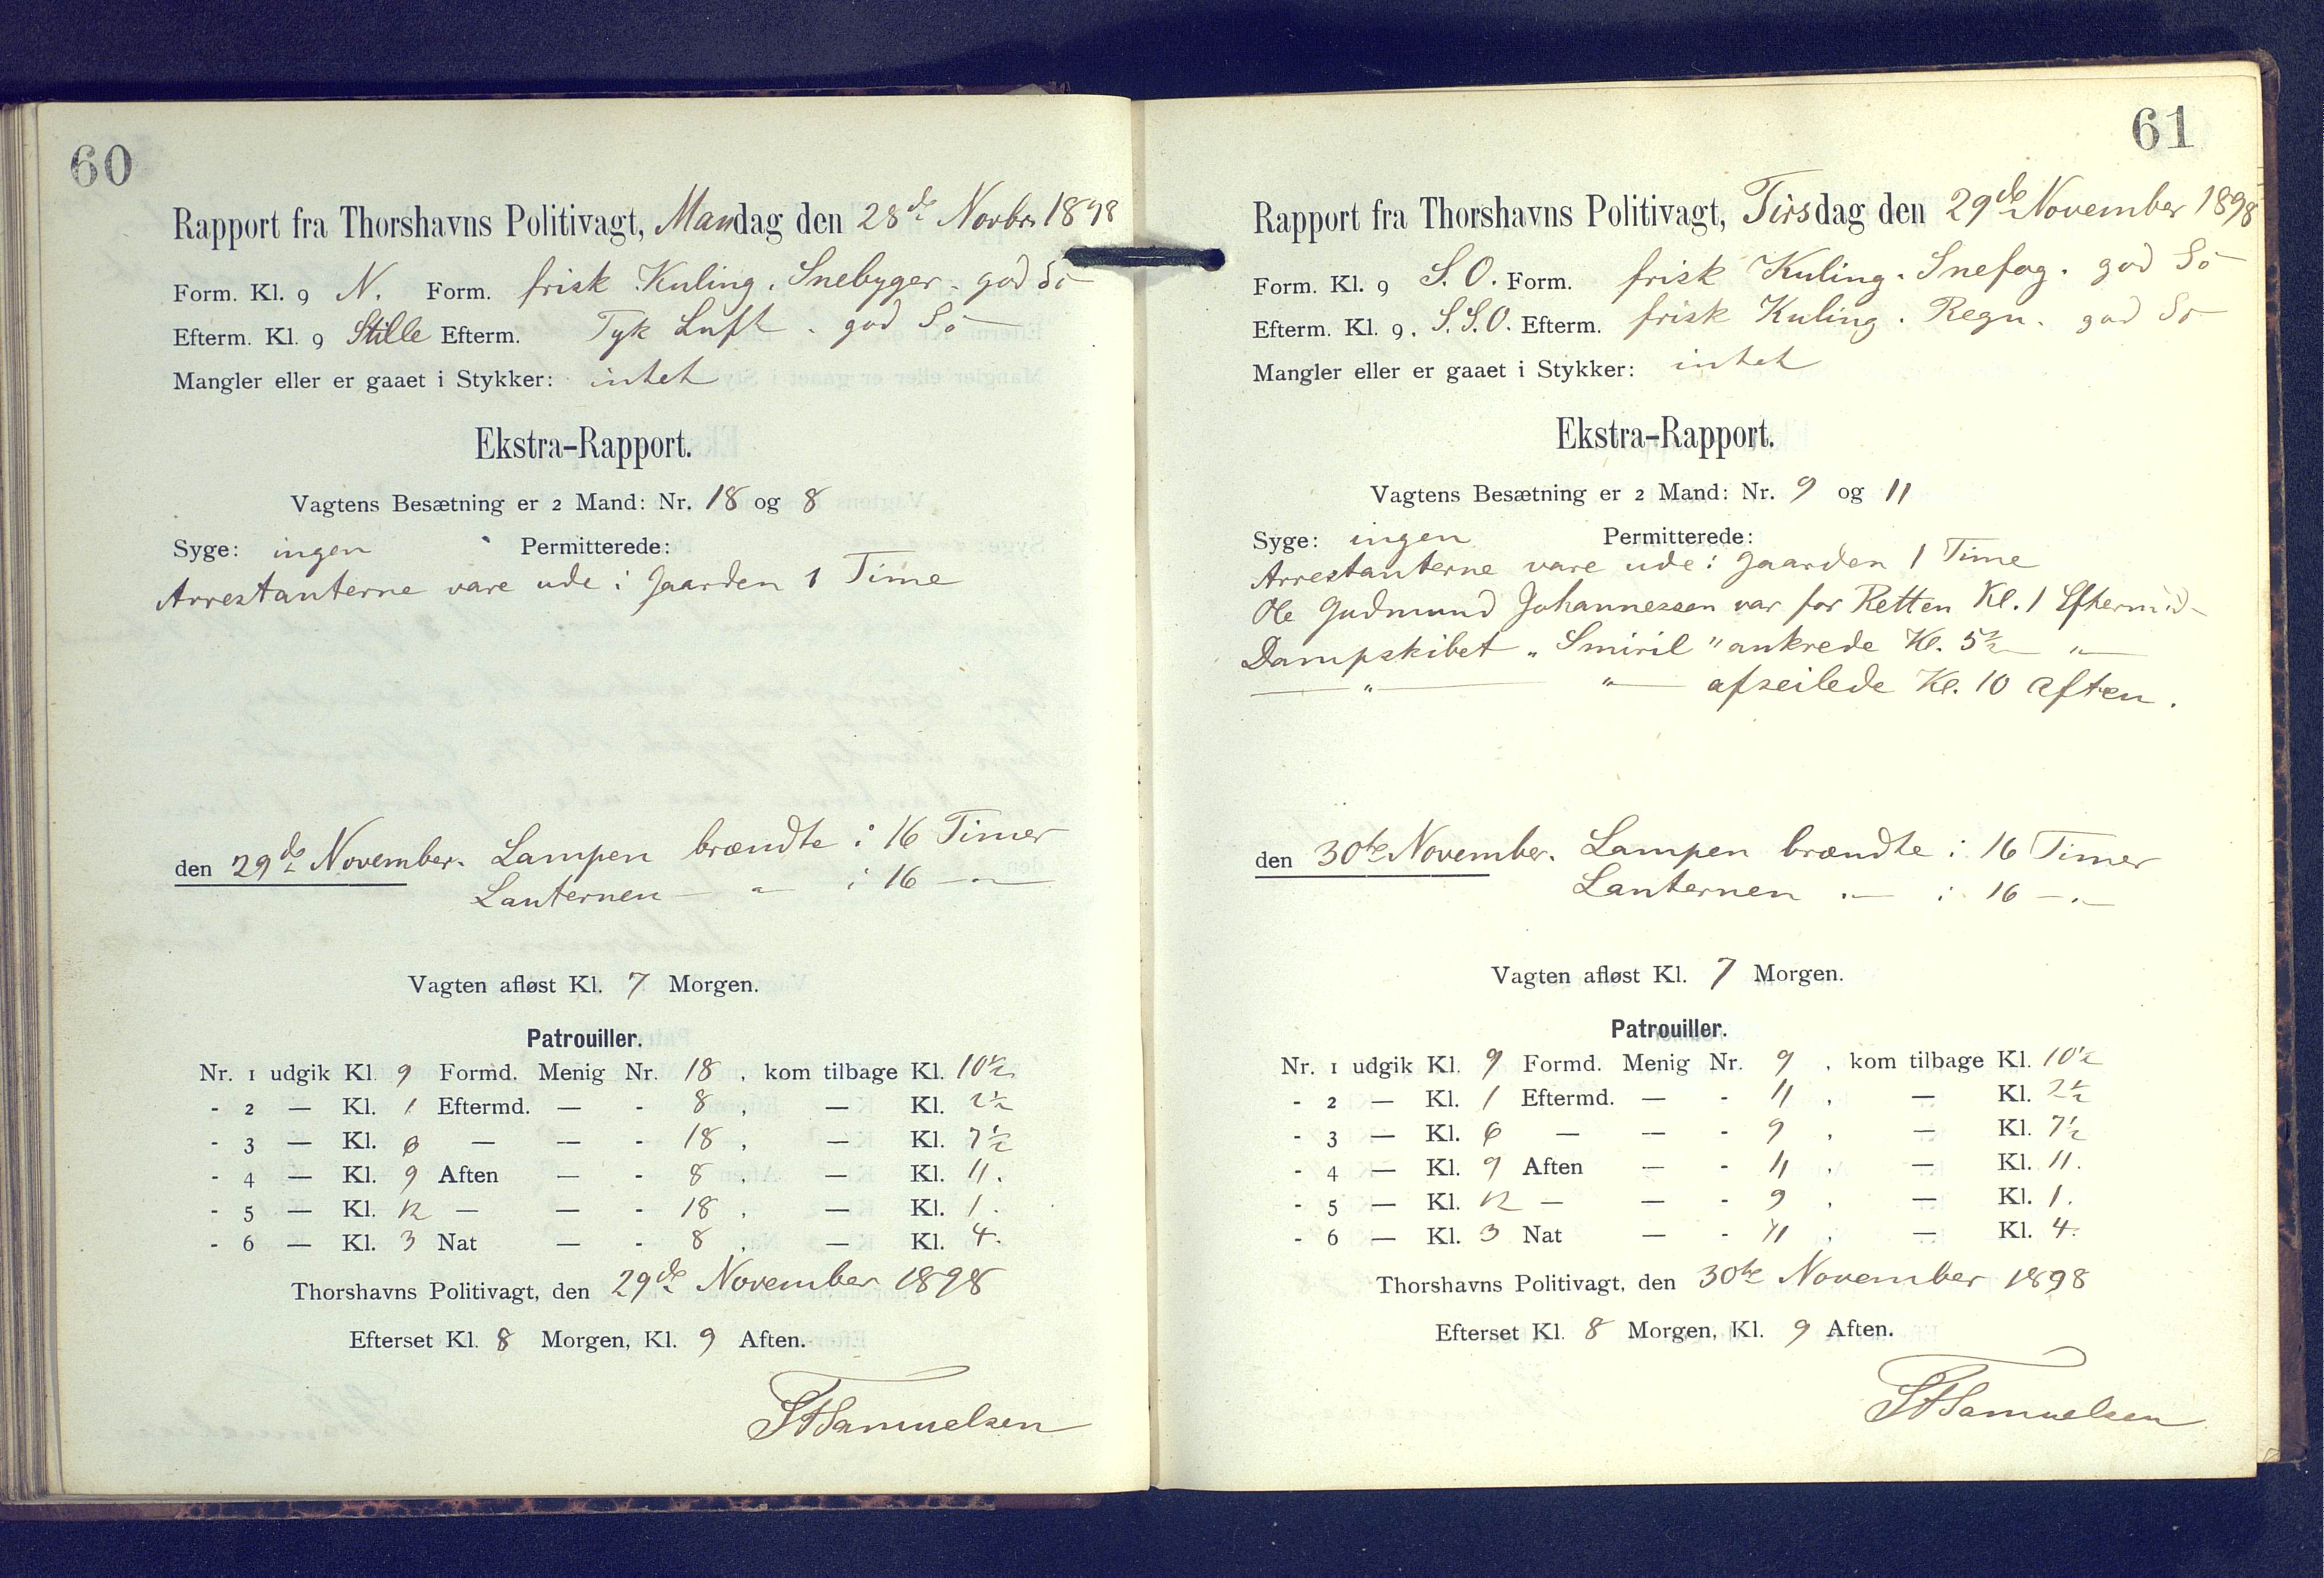 60
Rapport fra Thorshavns Politivagt, Mandag den 28de Novbr. 1898
Form. Kl. 9 N. Form. frisk Kuling. Snebyger. god Sö
Efterm. Kl. 9 Stille Efterm. Tyk Luft. god Sö
Mangler eller er gaaet i Stykker: intet
Ekstra-Rapport.
Vagtens Besætning er 2 Mand: Nr. 18 og 8
Syge: ingen Permitterede:
Arrestanterne vare ude i Gaarden 1 Time
den 29de November. Lampen brændte i 16 Timer
Lanternen — " — i 16 — " —
Vagten afløst Kl. 7 Morgen.
Patrouiller.
Nr. 1 udgik Kl. 9 Formd. Menig Nr. 18, kom tilbage Kl. 10½
- 2 — Kl. 1 Eftermd. — - 8, — Kl. 2½
- 3 — Kl. 6 — — - 18, — Kl. 7½
- 4 — Kl. 9 Aften — - 8, — Kl. 11.
- 5 — Kl. 12 — — - 18, — Kl. 1.
- 6 — Kl. 3 Nat — - 8, — Kl. 4.
Thorshavns Politivagt, den 29de November 1898
Efterset Kl. 8 Morgen, Kl. 9 Aften.
Samuelsen
61
Rapport fra Thorshavns Politivagt, Tirsdag den 29de November 1898
Form. Kl. 9 S.O. Form. frisk Kuling. Snefog. god Sö
Efterm. Kl. 9. S.S.O. Efterm. frisk Kuling. Regn. god Sö
Mangler eller er gaaet i Stykker: intet
Ekstra-Rapport.
Vagtens Besætning er 2 Mand: Nr. 9 og 11
Syge: ingen Permitterede:
Arrestanterne vare ude i Gaarden 1 Time
Ole Gudmund Johannessen var for Retten Kl. 1 Eftermid-
Dampskibet „Smiril" ankrede Kl. 5½ — " —
— " — " — afseilede Kl. 10 Aften.
den 30te November. Lampen brændte i 16 Timer
Lanternen " — i 16 — " —
Vagten afløst Kl. 7 Morgen.
Patrouiller.
Nr. 1 udgik Kl. 9 Formd. Menig Nr. 9, kom tilbage Kl. 10½
- 2 — Kl. 1 Eftermd. — - 11, — Kl. 2½
- 3 — Kl. 6 — — - 9, — Kl. 7½
- 4 — Kl. 9 Aften — - 11, — Kl. 11.
- 5 — Kl. 12 — — - 9, — Kl. 1.
- 6 — Kl. 3 Nat — - 11, — Kl. 4.
Thorshavns Politivagt, den 30te November 1898
Efterset Kl. 8 Morgen, Kl. 9 Aften.
Samuelsen